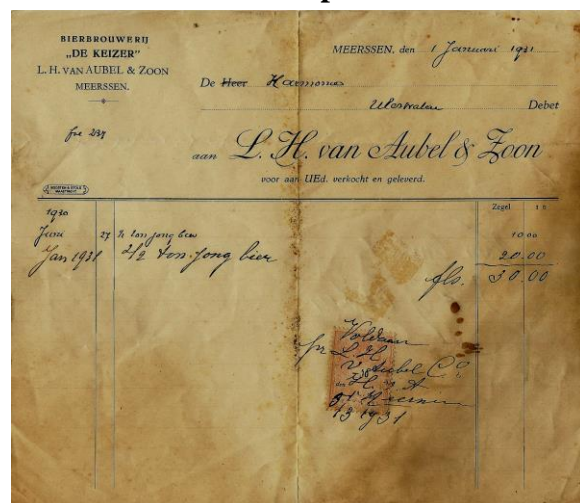 BIERBROUWERIJ
„DE KEIZER"
L. H. VAN AUBEL & ZOON
MEERSSEN.
MEERSSEN, den 1 Januari 1931
De Heer Harmonie
Ulestraten Debet
aan L. H. van Aubel & Zoon
voor aan UEd. verkocht en geleverd.
Zegel
1930
Juni 27 ½ ton jong bier 10 00
Jan 1931 2/2 ton jong bier 20.00
fls. 30.00
Voldaan
pr L. H.
v Aubel Co
1931